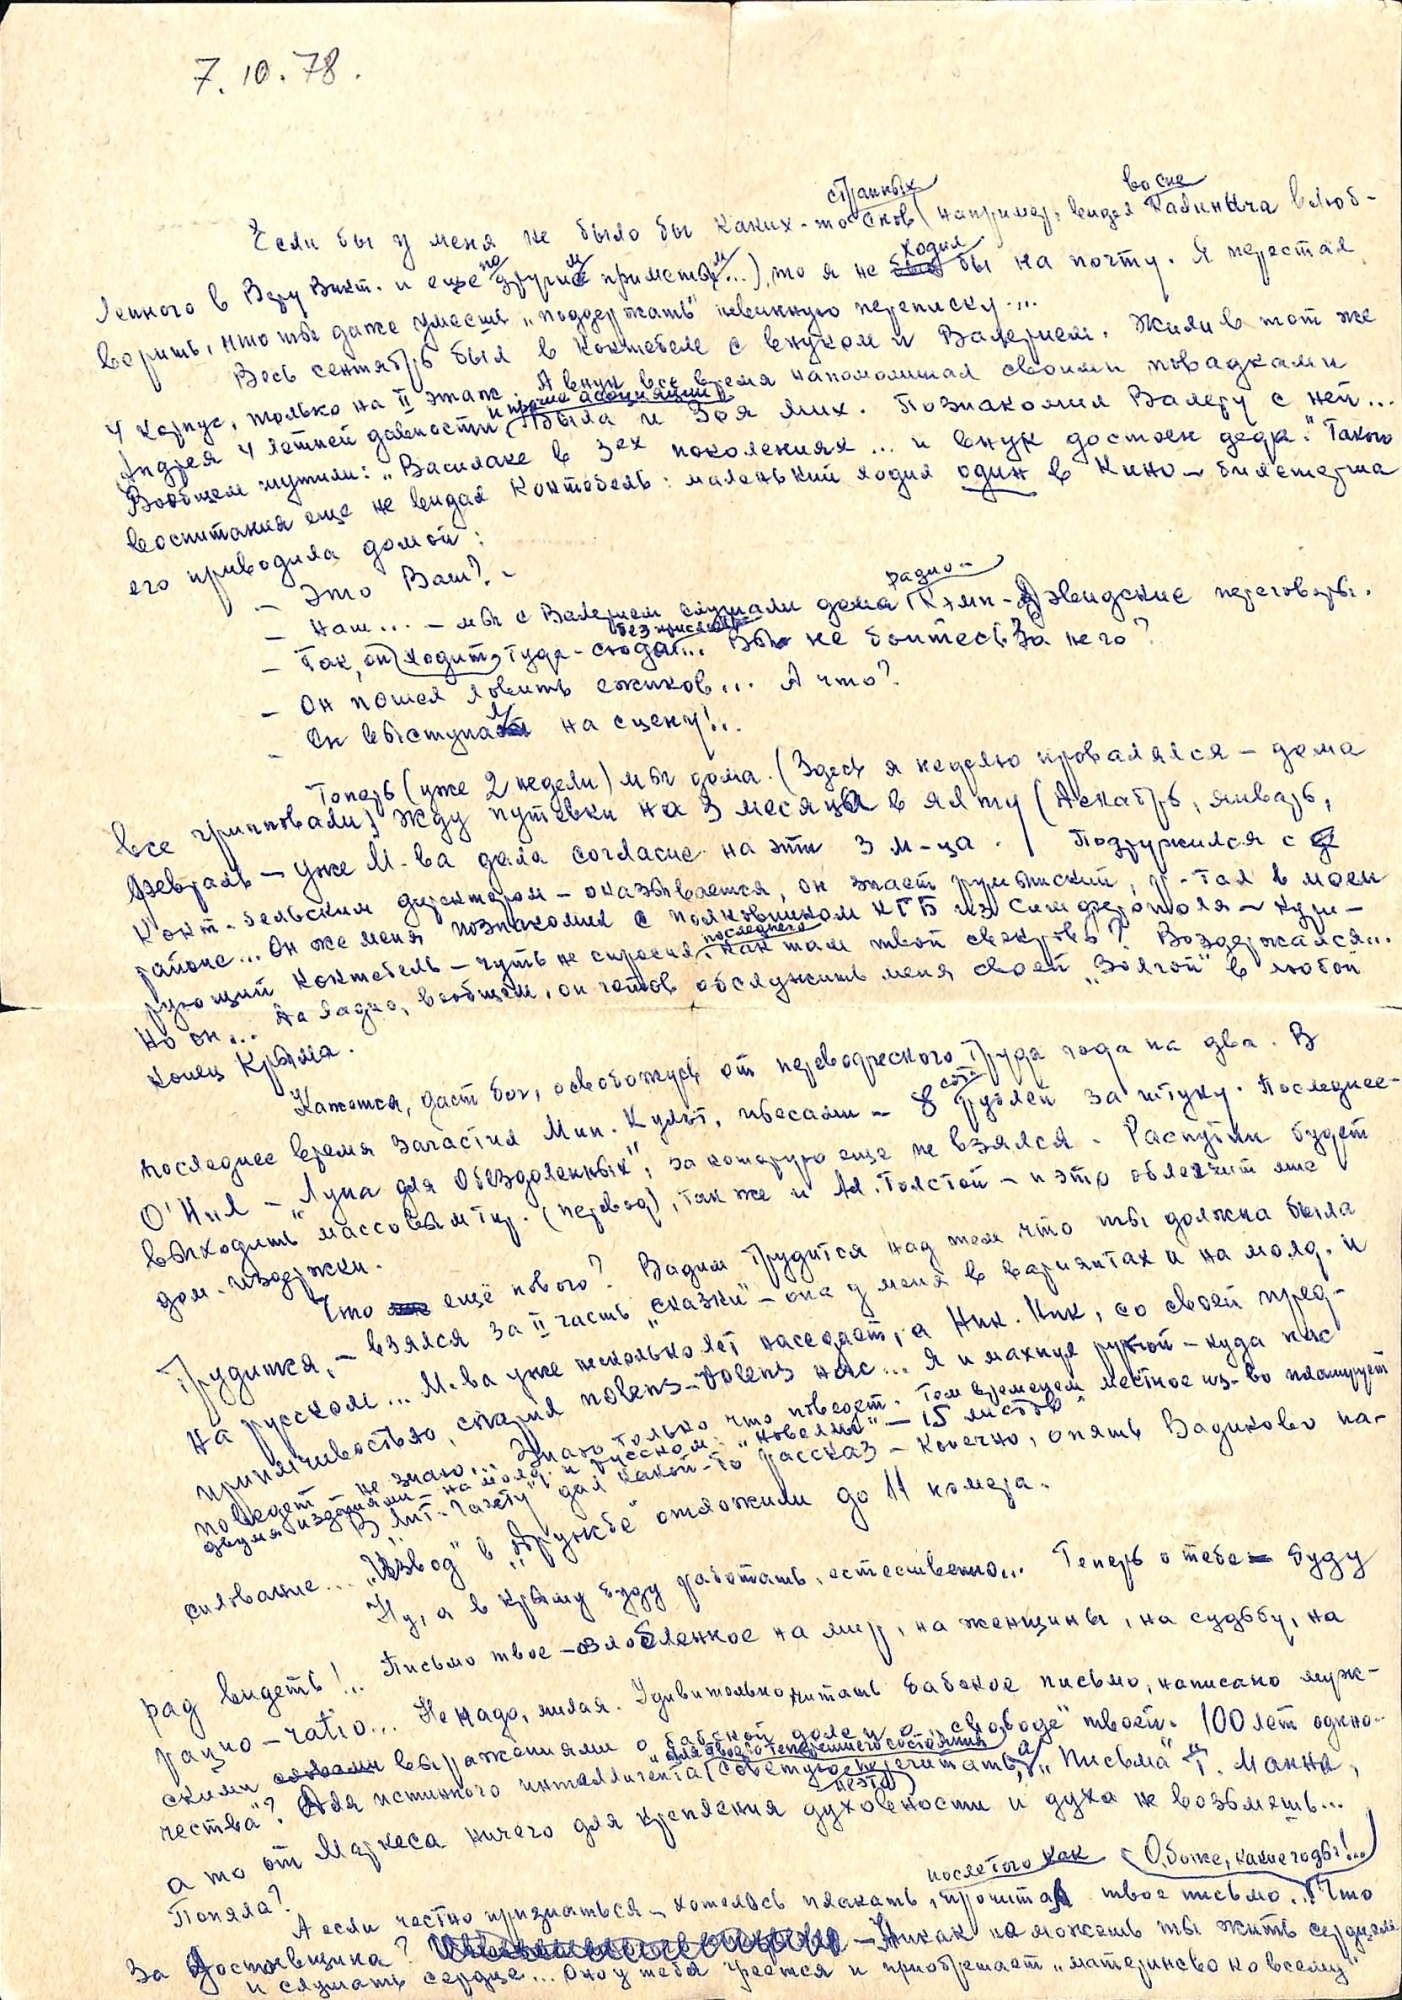 7.10.78.
Если бы у меня не было бы каких-то странных снов (например, видел во сне Калиныча влюб-
ленного в Веру Викт. и еще по другим приметам...), то я не ходил бы на почту. Я перестал
верить, что ты даже умеешь „поддержать" невинную переписку....
Весь сентябрь был в Коктебеле с внуком и Валерием. Жили в тот же
4 корпус, только на II этаж. А внук все время напоминал своими повадками
Андрея 4 летней давности и прочие ассоциации. Была и Зоя Мих. Познакомил Валеру с ней...
Вообщем шутили: „Василаке в 3ех поколениях... и внук достоен деда." Такого
воспитания еще не видал Коктебель: маленький ходил один в кино – билетерша
его приводила домой:
– Это Ваш? –
– Наш... – мы с Валерием слушали дома радио – Кэмп-Дэвидские переговоры.
– Так он ходит туда-сюда без присмотра... Вы не боитесь за него?
– Он пошел ловить ежиков... А что?
– Он выступал на сцену!..
Теперь (уже 2 недели) мы дома. (Здесь я неделю провалялся – дома
все грипповали). Жду путевки на 3 месяца в Ялту (декабрь, январь,
февраль – уже М-ва дала согласие на эти 3 м-ца. Подружился с
Кокт-бельским директором – оказывается, он знает румынский, р-тал в моем
районе... Он же меня познакомил с полковником КГБ из Симферополя – кури-
рующий Коктебель – чуть не спросил последнего: как там твой свекровь? Воздержался...
Но он... Да ладно, вообщем, он готов обслужить меня своей „Волгой" в любой
конец Крыма.
Кажется, даст бог, освобожусь от переводческого труда года на два. В
последнее время зачастил Мин. Культ. пьесами – 8 сот рублей за штуку. Последнее –
О'Нил – „Луна для обездоленных", за которую еще не взялся. Распутин будет
выходить массовым тир. (перевод), так же и Ал. Толстой – и это облегчит мне
дом. издержки.
Что ещё нового? Вадим трудится над тем что ты должна была
трудиться, – взялся за II часть „сказки" – она у меня в вариантах и на молд. и
на русском... М-ва уже несколько лет наседает, а Ник. Ник, со своей пред-
приимчивостью, спарил nolens-volens нас... Я и махнул рукой – куда нас
поведет – не знаю... Знаю только что поведет. Тем временем местное из-во планирует
двумя изданиями – на молд. и русском „новеллы" – 15 листов.
В „Лит-Газету" дал какой-то рассказ – конечно, опять Вадиково на-
силование... „Взвод" в „Дружбе" отложили до 11 номера.
Ну, а в Крыму буду работать, естественно... Теперь о тебе – буду
рад видеть!.. Письмо твое – озлобленное на мир, на женщины, на судьбу, на
рацио – ratio... Не надо, милая. Удивительно читать бабское письмо, написано муж-
скими выражениями о бабской доле и о „свободе" твоей. 100 лет одино-
чества"? Для истинного интеллигента, для твоего теперешнего состояния советую перечитать „Письма" Т. Манна,
а то от Маркеса ничего для крепления духовности и духа не возьмешь...
Поняла?
А если честно признаться – хотелось плакать, после того как прочитал твое письмо... (О, боже, какие годы!...) Что
за достоевщина? – Никак не можешь ты жить сердцем
и слушать сердце... Оно у тебя греется и приобретает „материнство ко всему"